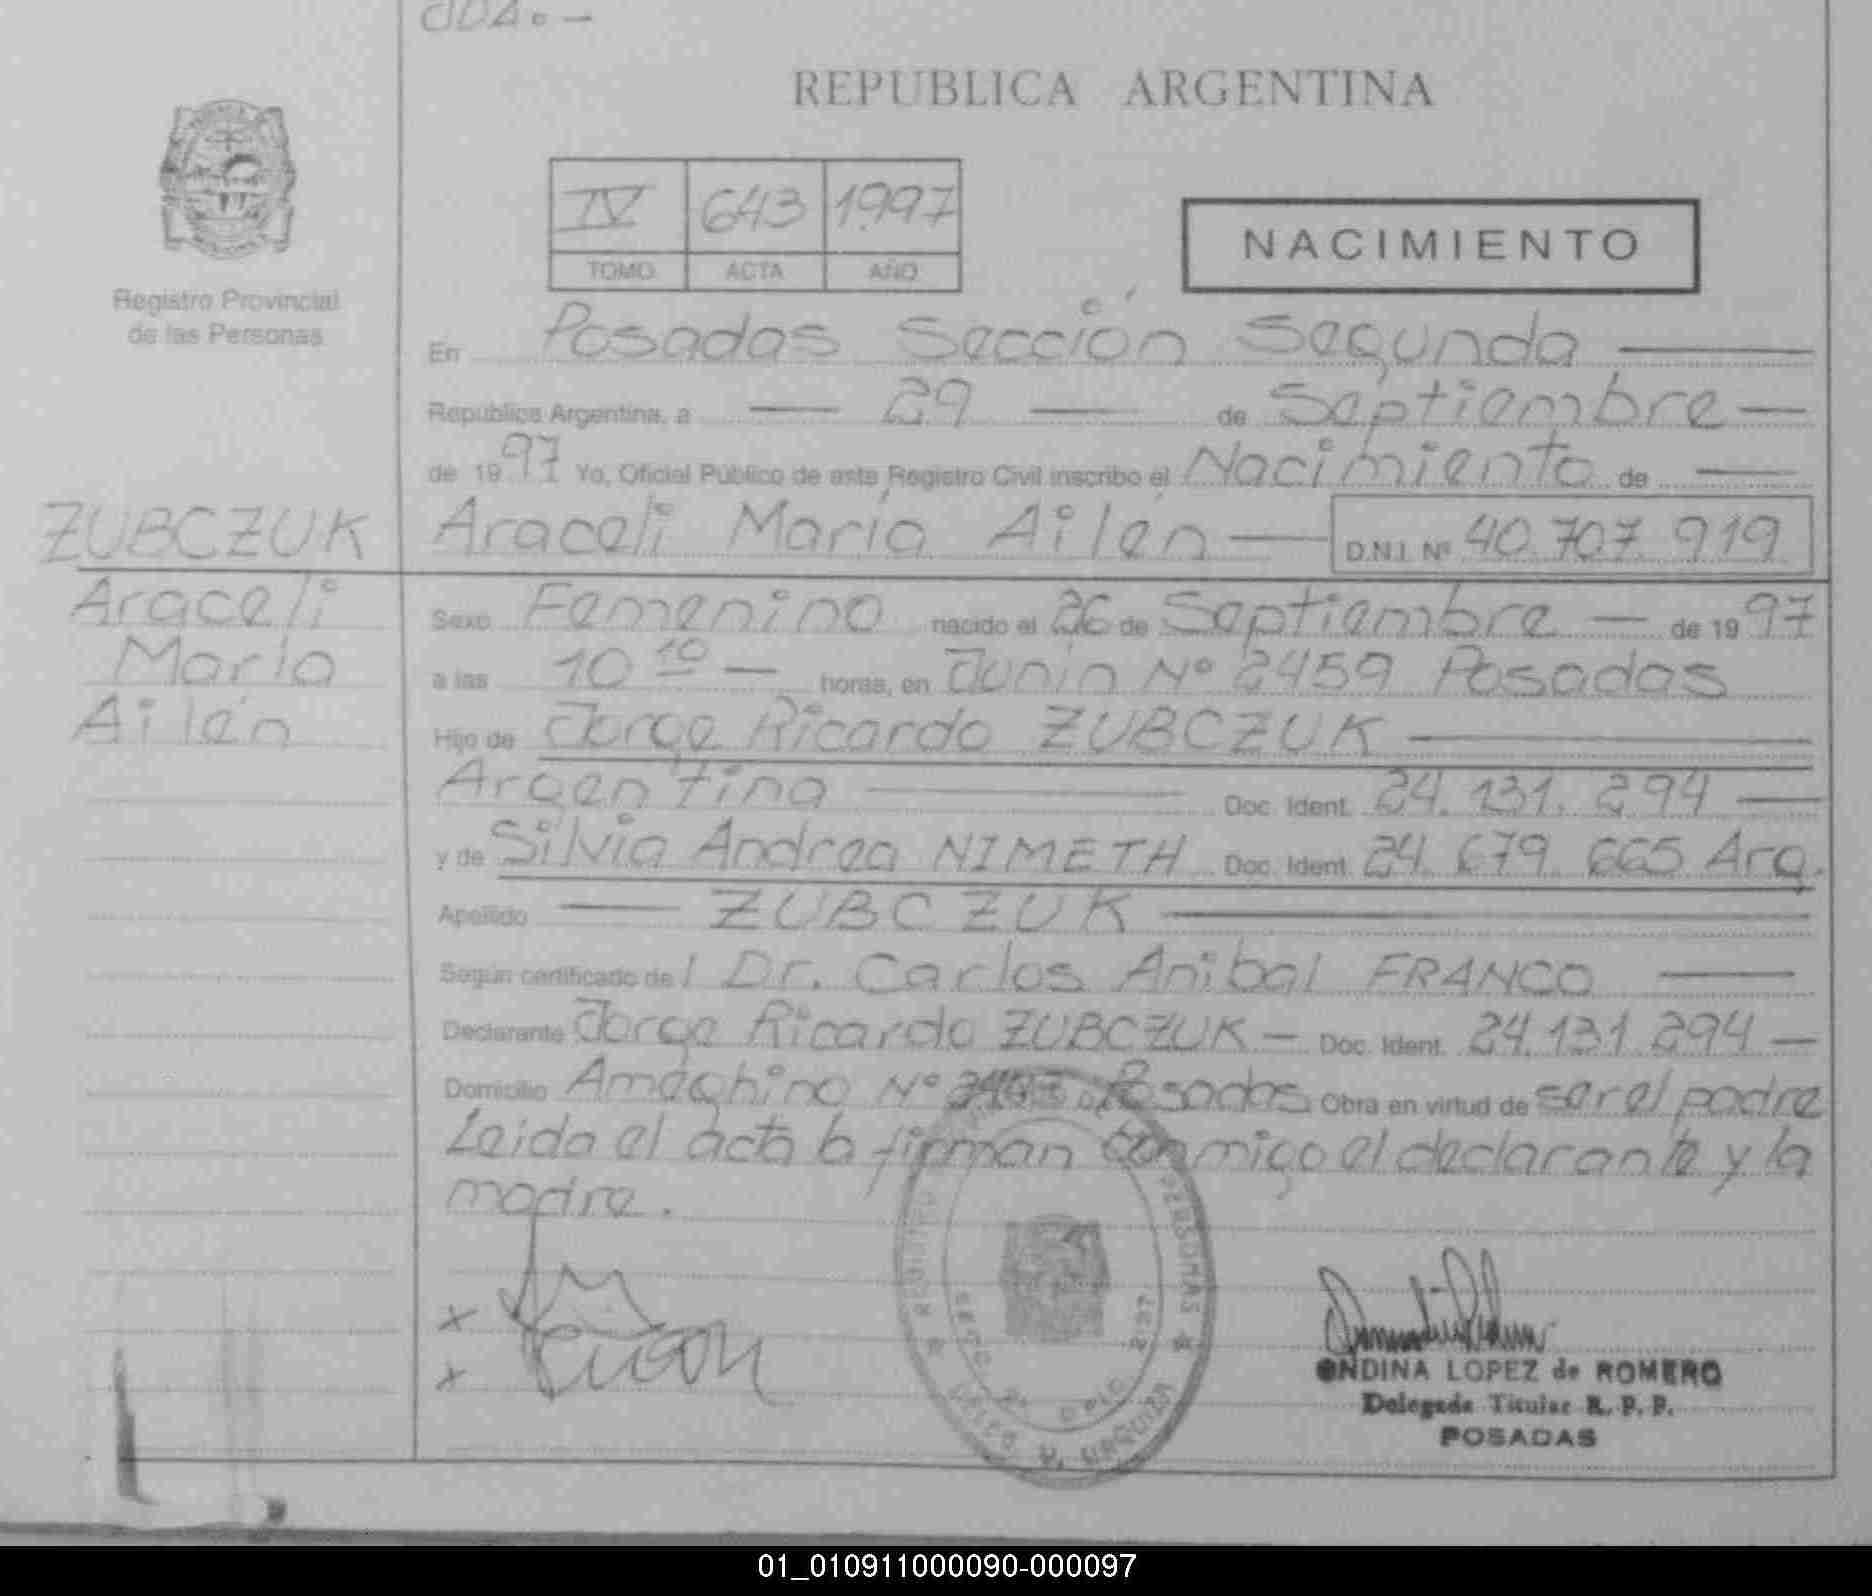 REPUBLICA ARGENTINA
IV 643 1997
TOMO ACTA AÑO
NACIMIENTO
Registro Provincial
de las Personas
En Posadas Sección Segunda
República Argentina, a 29 de Septiembre
de 1997 Yo, Oficial Público de este Registro Civil inscribo el Nacimiento de
ZUBCZUK
Araceli
María
Ailén
Araceli María Ailén D.N.I. Nº 40.707.919
Sexo Femenino nacido el 26 de Septiembre de 1997
a las 10 10 horas, en Junín Nº 2459 Posadas
Hijo de Jorge Ricardo ZUBCZUK
Argentina Doc. Ident. 24.131.294
y de Silvia Andrea NIMETH Doc. Ident. 24.679.665 Arg.
Apellido ZUBCZUK
Según certificado del Dr. Carlos Anibal FRANCO
Declarante Jorge Ricardo ZUBCZUK Doc. Ident. 24.131.294
Domicilio Ameghino Nº Posadas Obra en virtud de ser el padre
Leida el acta la firman conmigo el declarante y la
madre.
x
x
PERSONAS
SECC. 2º
URQUIZA
ONDINA LOPEZ de ROMERO
Delegada Titular R. P. P.
POSADAS
01_010911000090-000097